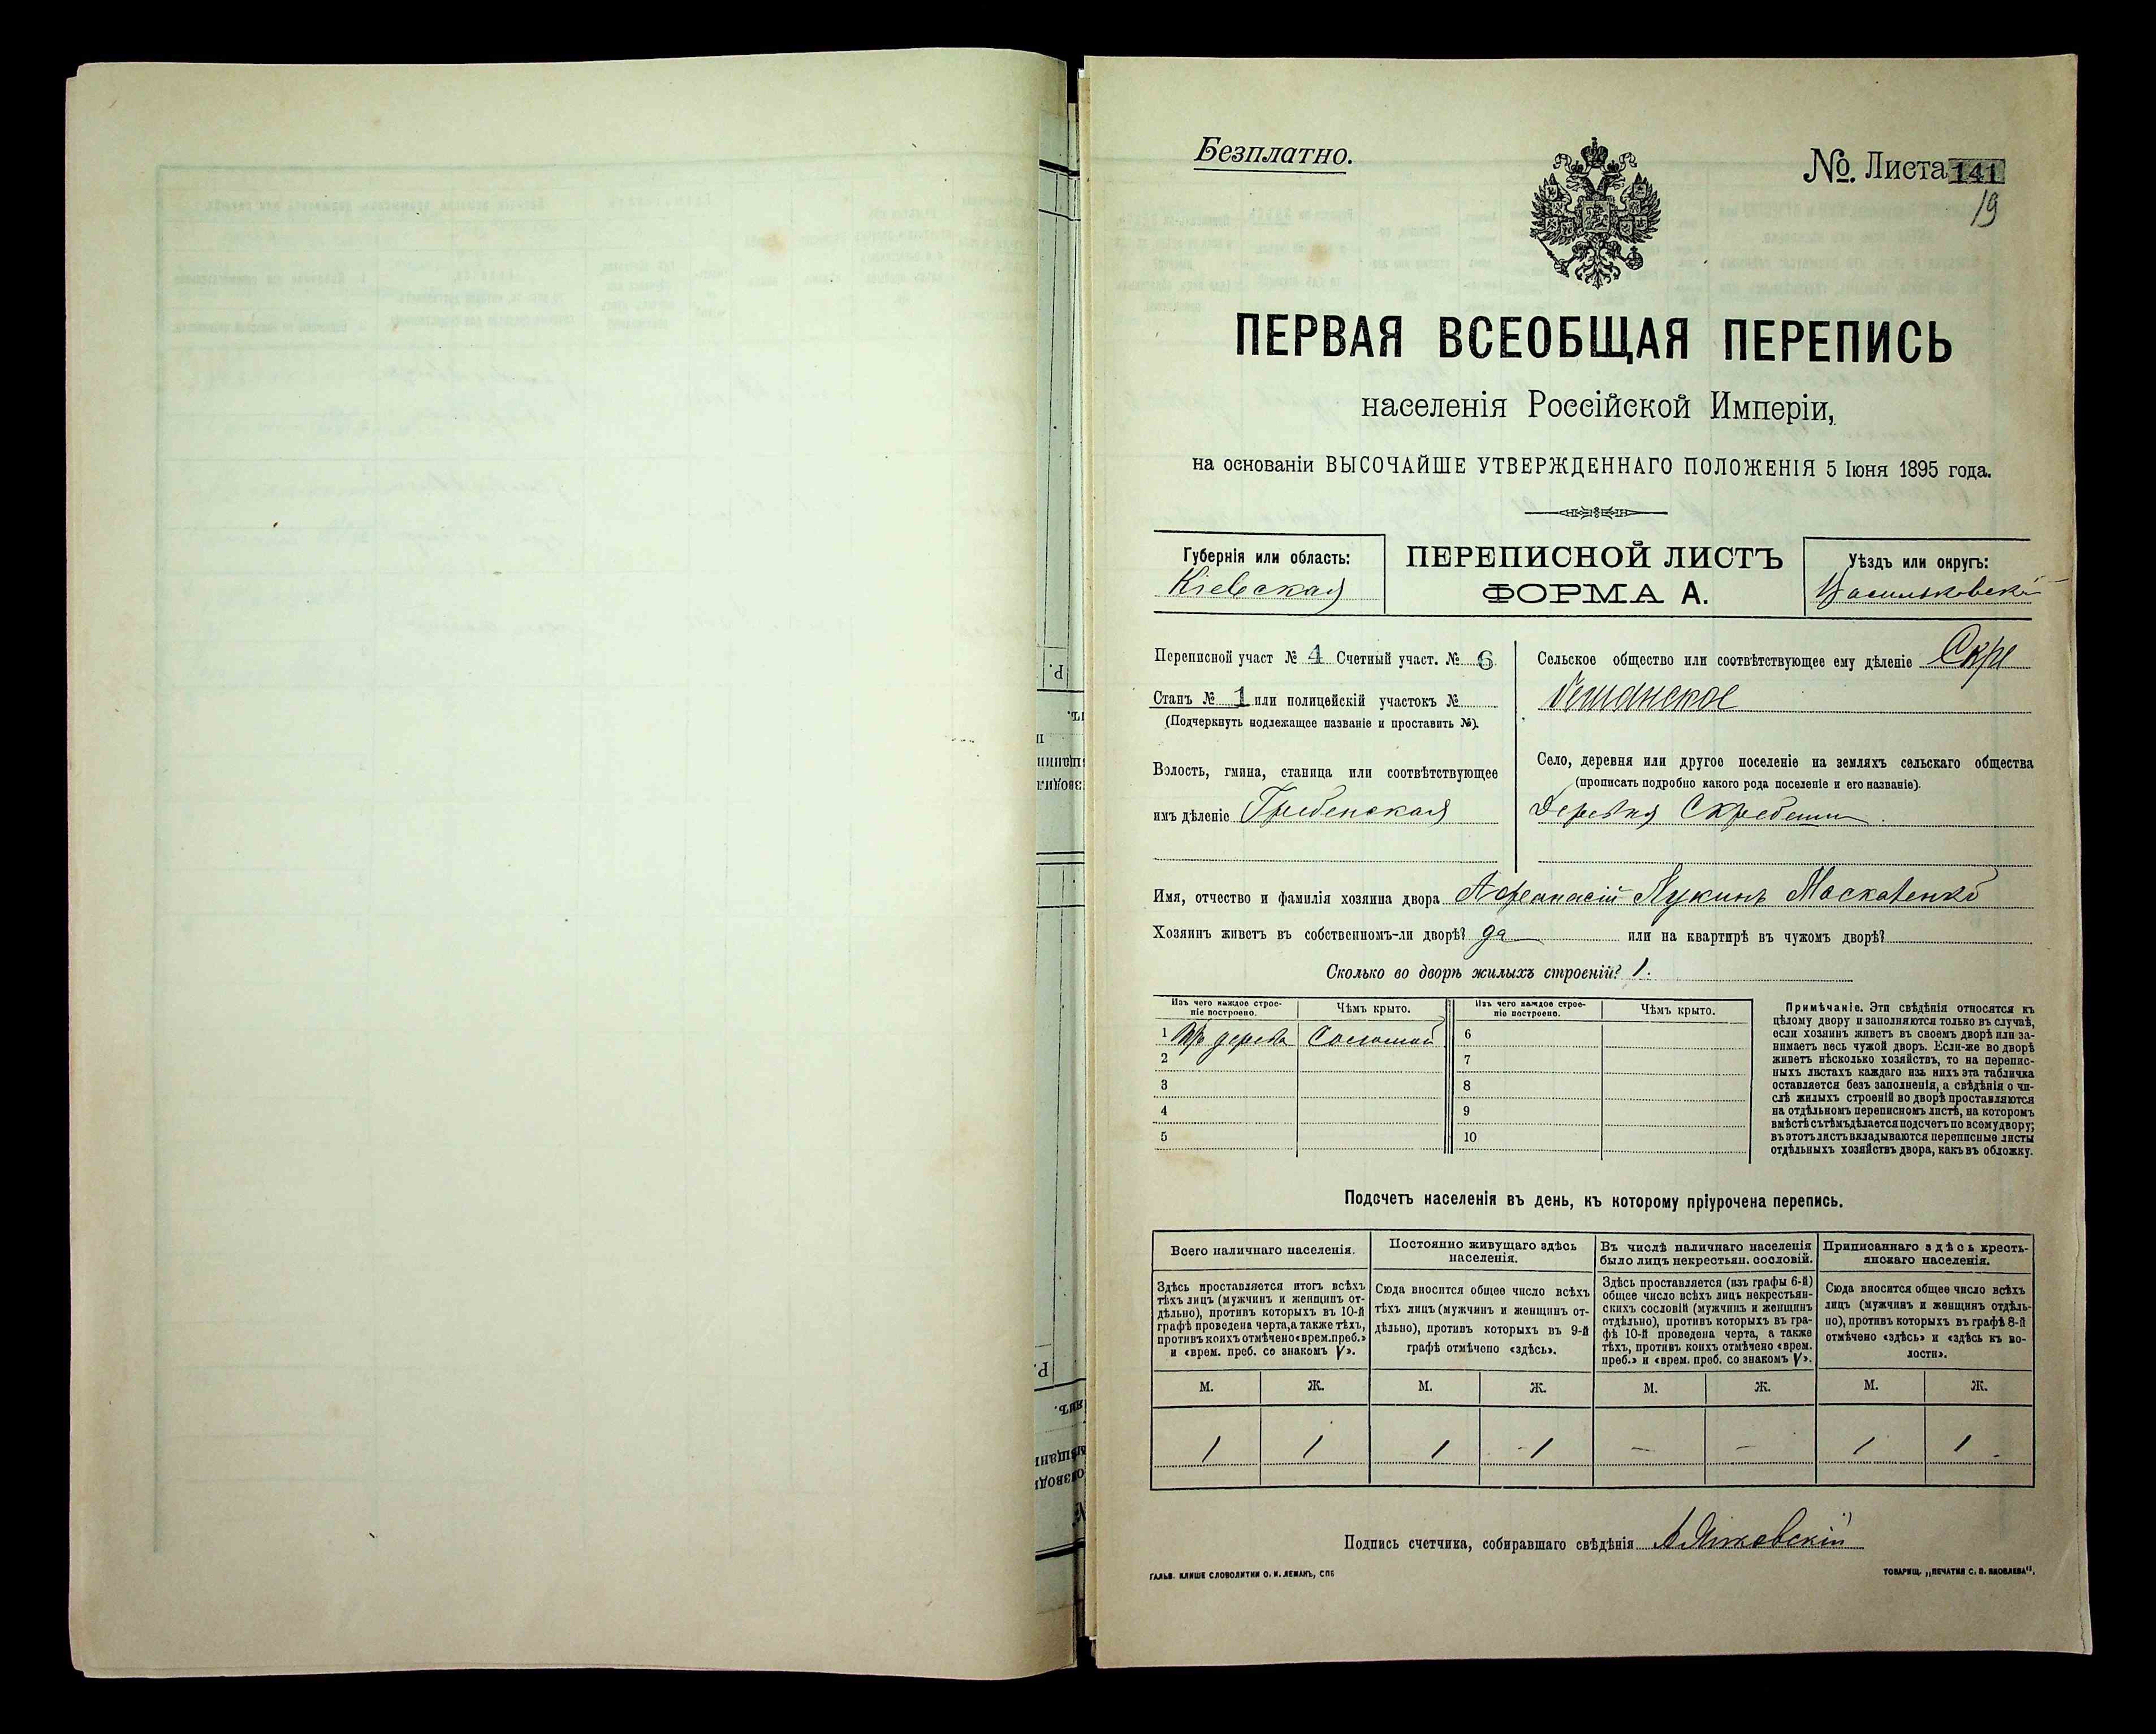 Безплатно.
№. Листа 141
19
ПЕРВАЯ ВСЕОБЩАЯ ПЕРЕПИСЬ
населенія Россійской Имперіи,
на основаніи ВЫСОЧАЙШЕ УТВЕРЖДЕННАГО ПОЛОЖЕНІЯ 5 Іюня 1895 года.
Губернія или область:
Кіевская
ПЕРЕПИСНОЙ ЛИСТЪ
ФОРМА А.
Уѣздъ или округъ:
Васильковскій
Переписной участ № 4 Счетный участ. № 6
Станъ № 1 или полицейскій участокъ №
(Подчеркнуть подлежащее названіе и проставить №).
Волость, гмина, станица или соотвѣтствующее
имъ дѣленіе Гребенская
Сельское общество или соотвѣтствующее ему дѣленіе Скре
бешанское
Село, деревня или другое поселеніе на земляхъ сельскаго общества
(прописать подробно какого рода поселеніе и его названіе).
Деревня Скребеши.
Имя, отчество и фамилія хозяина двора Афанасій Лукинъ Маскаленко
Хозяинъ живетъ въ собственномъ-ли дворѣ? да или на квартирѣ въ чужомъ дворѣ?
Сколько во дворѣ жилыхъ строеній? 1.
Изъ чего каждое строе-
ніе построено.
Чѣмъ крыто.
Изъ чего каждое строе-
ніе построено.
Чѣмъ крыто.
1 Изъ дерева Соломой 6
2 7
3 8
4 9
5 10
Примѣчаніе. Эти свѣдѣнія относятся къ
цѣлому двору и заполняются только въ случаѣ,
если хозяинъ живетъ въ своемъ дворѣ или за-
нимаетъ весь чужой дворъ. Если-же во дворѣ
живетъ нѣсколько хозяйствъ, то на перепис-
ныхъ листахъ каждаго изъ нихъ эта табличка
оставляется безъ заполненія, а свѣдѣнія о чи-
слѣ жилыхъ строеній во дворѣ проставляются
на отдѣльномъ переписномъ листѣ, на которомъ
вмѣстѣ съ тѣмъ дѣлается подсчетъ по всему двору;
въ этотъ листъ вкладываются переписные листы
отдѣльныхъ хозяйствъ двора, какъ въ обложку.
Подсчетъ населенія въ день, къ которому пріурочена перепись.
Всего наличнаго населенія.
Здѣсь проставляется итогъ всѣхъ
тѣхъ лицъ (мужчинъ и женщинъ от-
дѣльно), противъ которыхъ въ 10-й
графѣ проведена черта, а также тѣхъ,
противъ коихъ отмѣчено «врем. преб.»
и «врем. преб. со знакомъ V».
Постоянно живущаго здѣсь
населенія.
Сюда вносится общее число всѣхъ
тѣхъ лицъ (мужчинъ и женщинъ от-
дѣльно), противъ которыхъ въ 9-й
графѣ отмѣчено «здѣсь».
Въ числѣ наличнаго населенія
было лицъ некрестьян. сословій.
Здѣсь проставляется (изъ графы 6-й)
общее число всѣхъ лицъ некрестьян-
скихъ сословій (мужчинъ и женщинъ
отдѣльно), противъ которыхъ въ гра-
фѣ 10-й проведена черта, а также
тѣхъ, противъ коихъ отмѣчено «врем.
преб.» и «врем. преб. со знакомъ V».
Приписаннаго здѣсь кресть-
янскаго населенія.
Сюда вносится общее число всѣхъ
лицъ (мужчинъ и женщинъ отдѣль-
но), противъ которыхъ въ графѣ 8-й
отмѣчено «здѣсь» и «здѣсь въ во-
лости».
М. Ж. М. Ж. М. Ж. М. Ж.
1 1 1 1 — — 1 1
Подпись счетчика, собиравшаго свѣдѣнія
ГАЛЬВ. КЛИШЕ СЛОВОЛИТНИ О. И. ЛЕМАНЪ, СПБ
ТОВАРИЩ. „ПЕЧАТНЯ С. П. ЯКОВЛЕВА".